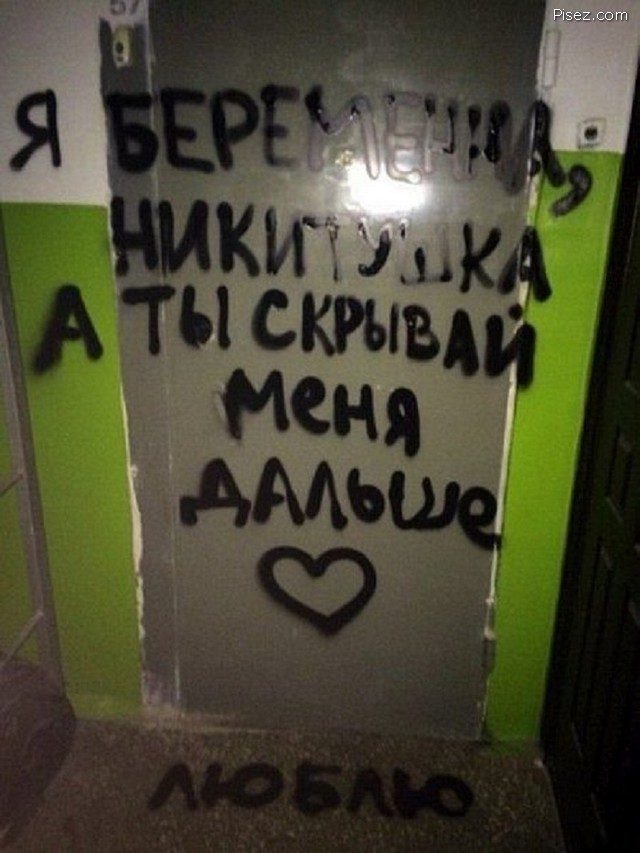 Pisez.com
57
Я БЕРЕМЕННА,
НИКИТУШКА
А ТЫ СКРЫВАЙ
МЕНЯ
ДАЛЬШЕ
ЛЮБЛЮ